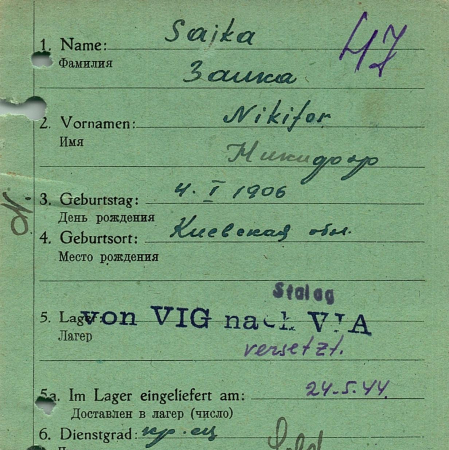 47
1. Name: Sajka
Фамилия Заика
2. Vornamen: Nikifor
Имя Никифор
3. Geburtstag: 4. I 1906
День рождения
4. Geburtsort: Киевская обл.
Место рождения
Stalag
5. Lager: von VIG nach VIA
Лагер versetzt.
5a. Im Lager eingeliefert am: 24.5.44.
Доставлен в лагер (число)
6. Dienstgrad: кр-ец